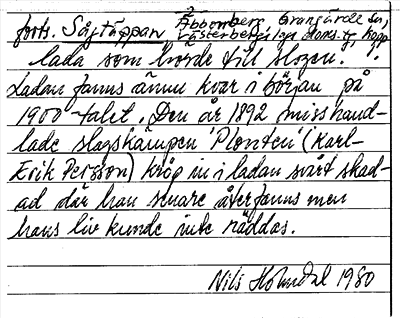 forts. Sågtäppan Abbomberg, Grangärde sn,
Västerbergslags doms.g, Kopp.
lada som hörde till slogen.
Ladan fanns ännu kvar i början på
1900-talet. Den år 1892 misshand-
lade slagskämpen 'Plonten' (Karl-
Erik Persson) kröp in i ladan svårt skad-
ad där han senare återfanns men
hans liv kunde inte räddas.
Nils Holmdal 1980